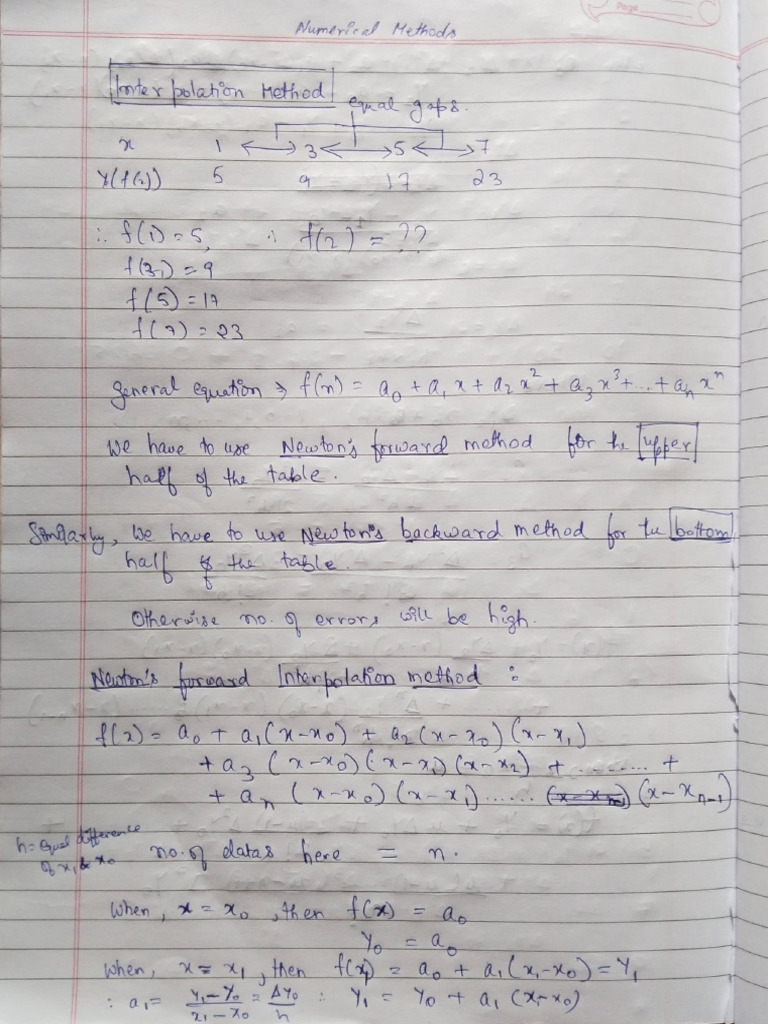 Page
Numerical Methods
Interpolation Method
equal gaps.
x 1 ⟷ 3 ⟷ 5 ⟷ 7
Y(f(x)) 5 9 17 23
∴ f(1) = 5, ∴ f(2) = ??
f(3) = 9
f(5) = 17
f(7) = 23
general equation ⇒ f(n) = a₀ + a₁x + a₂x² + a₃x³ + ... + aₙxⁿ
We have to use Newton's forward method for the upper
half of the table.
Similarly, We have to use Newton's backward method for the bottom
half of the table.
Otherwise no. of errors will be high.
Newton's forward Interpolation method :
f(x) = a₀ + a₁(x-x₀) + a₂(x-x₀)(x-x₁)
+ a₃ (x-x₀)(x-x₁)(x-x₂) + ........ +
+ aₙ (x-x₀)(x-x₁)...... (x-xₙ₋₁)
h = equal difference
of x₁ & x₀
no. of datas here = n.
When, x = x₀, then f(x) = a₀
Y₀ = a₀
When, x = x₁, then f(x₁) = a₀ + a₁(x₁-x₀) = Y₁
∴ a₁ = (Y₁-Y₀)/(x₁-x₀) = ΔY₀/h ∴ Y₁ = Y₀ + a₁ (x₁-x₀)